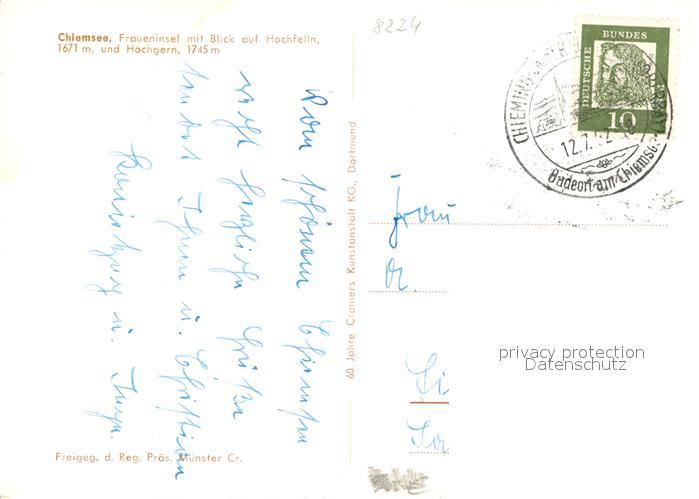 Chiemsee, Fraueninsel mit Blick auf Hochfelln,
1671 m, und Hochgern, 1745 m
8224
DEUTSCHE BUNDES
10
CHIEMING
12.7.62
Badeort am Chiemsee
Vom schönen Chiemsee
recht herzliche Grüße
sendet Ihnen u. Christian
60 Jahre Cramers Kunstanstalt KG., Dortmund
Frau
privacy protection
Datenschutz
Freigeg. d. Reg. Präs. Münster Cr.